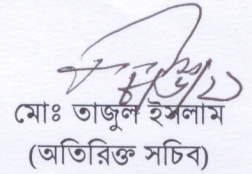 মোঃ তাজুল ইসলাম
(অতিরিক্ত সচিব)